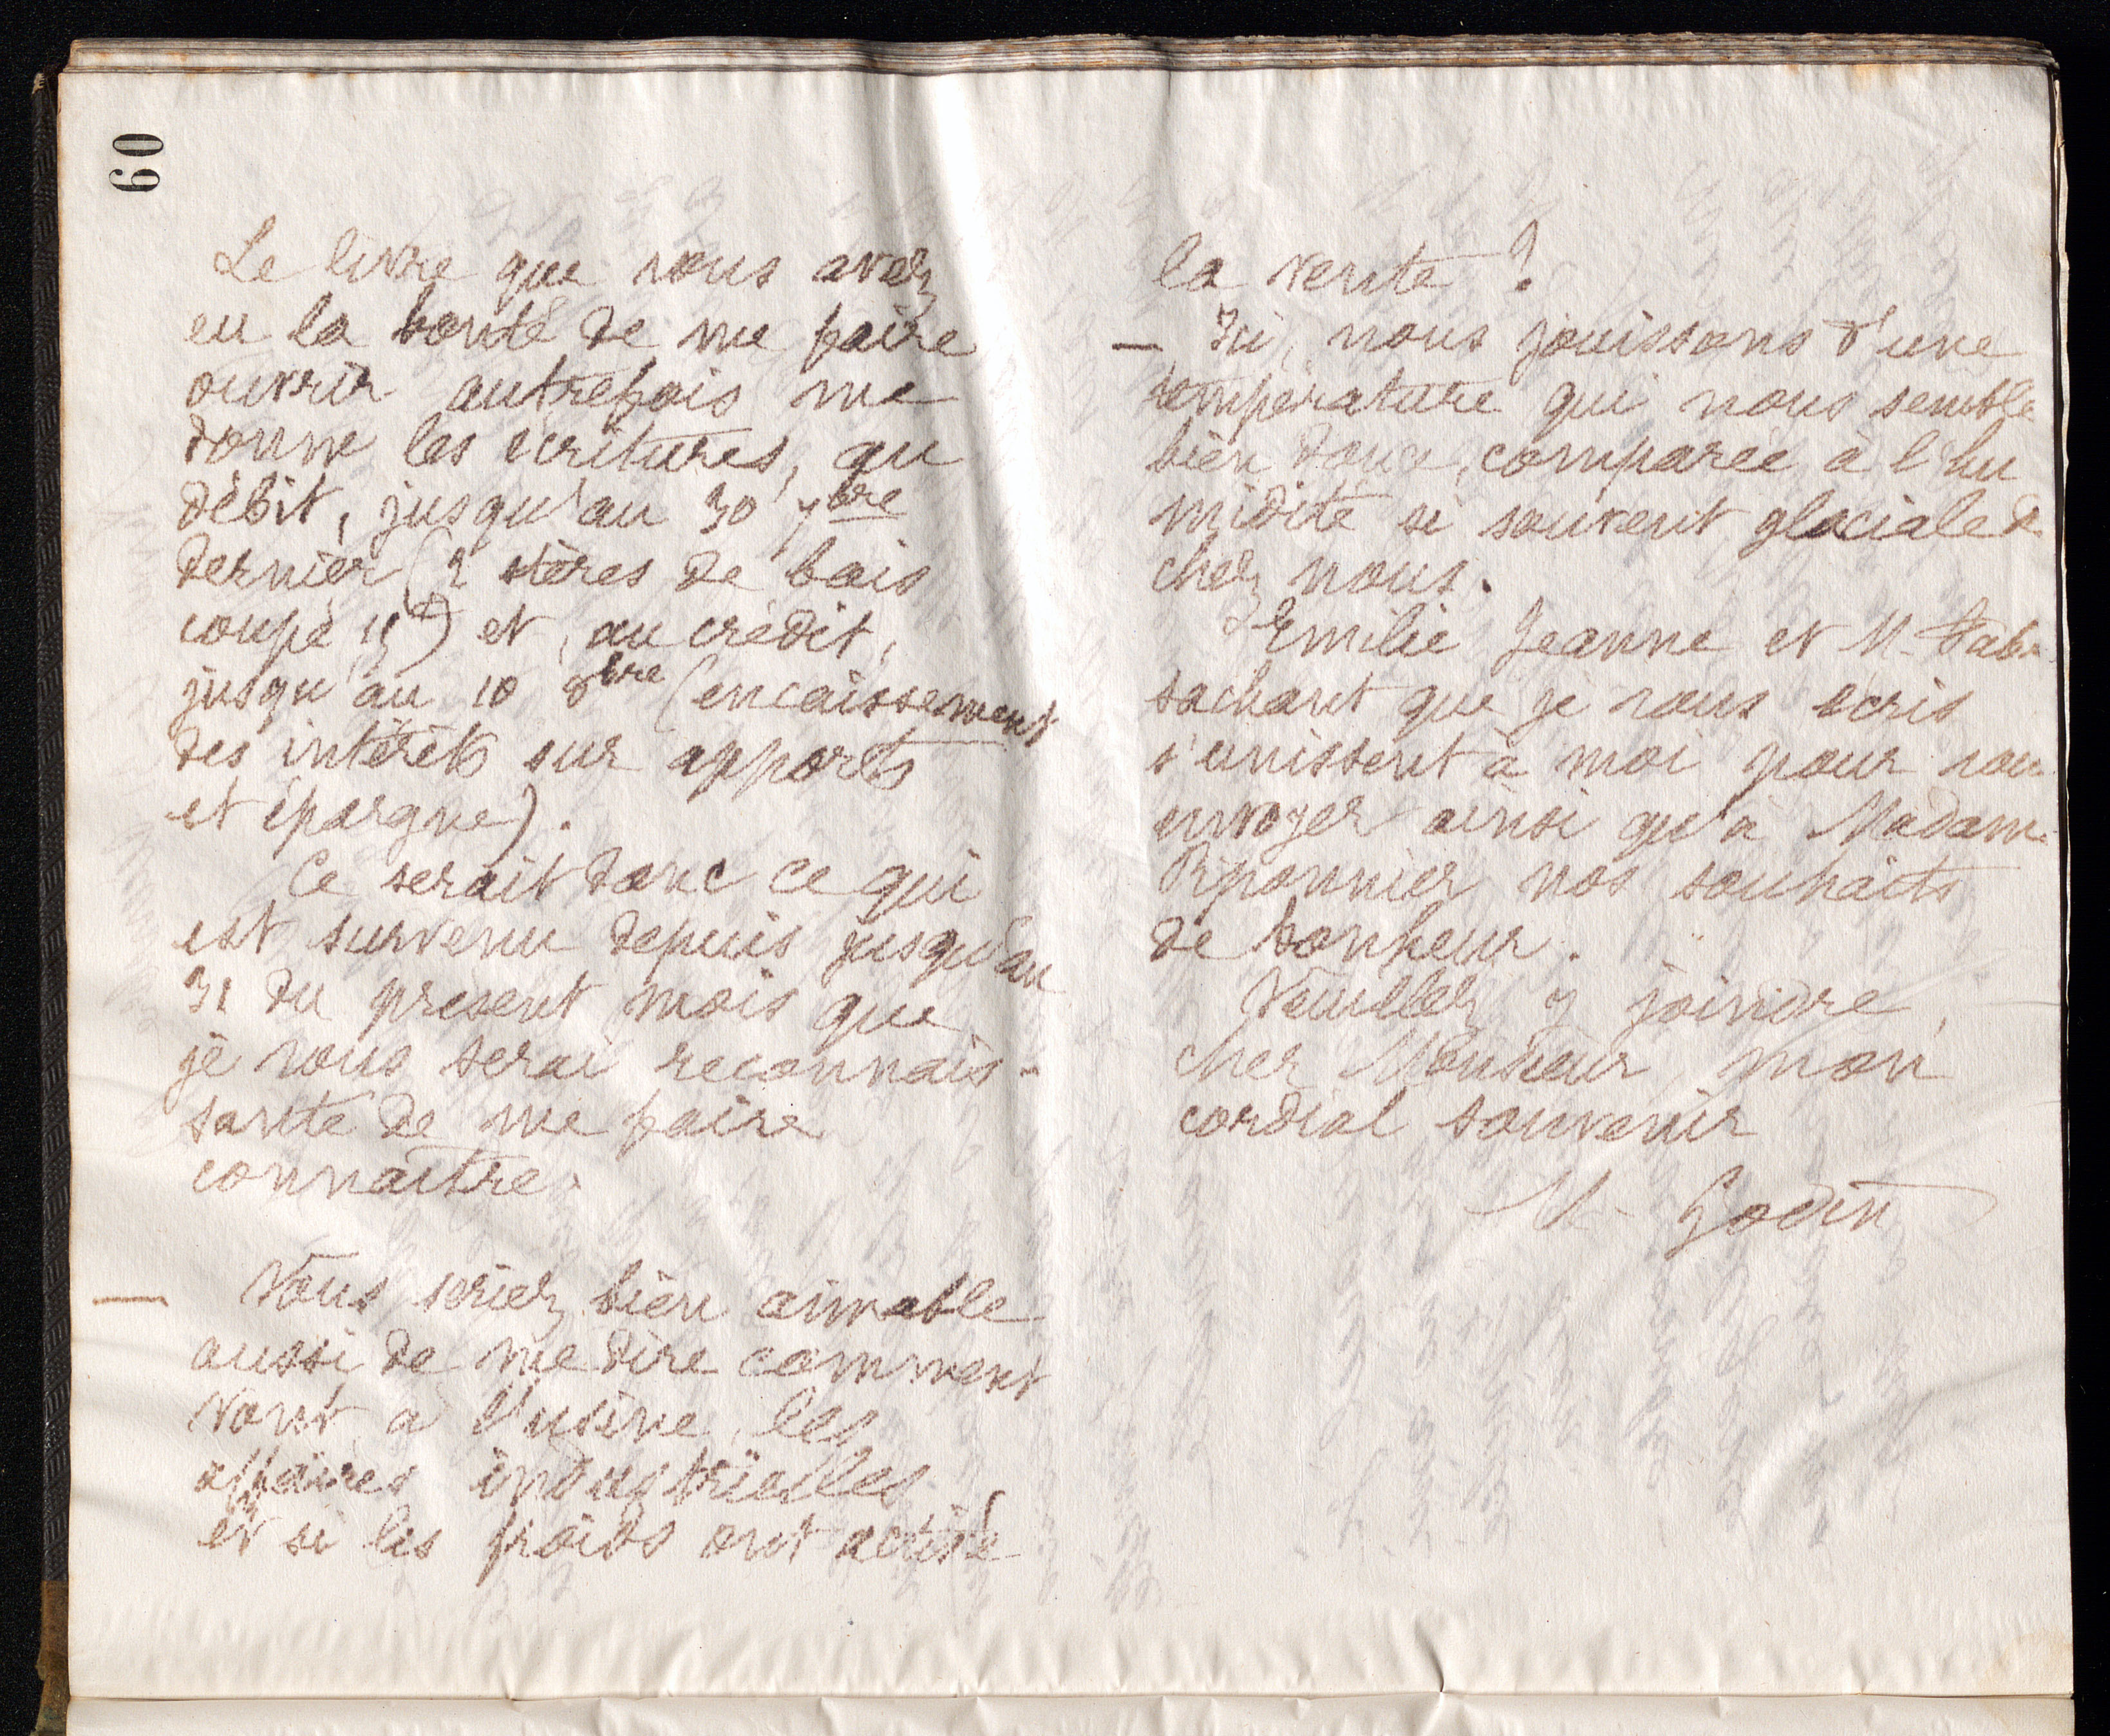 60
Le livre que vous avez
eu la bonté de me faire
ouvrir autrefois me
donne les écritures, au
débit, jusqu'au 30 7bre
dernier (2 stères de bois
coupé et, au crédit,
jusqu'au 10 8bre (encaissement
des intérêts sur apports
et épargne).
Ce serait donc ce qui
est survenu depuis jusqu'au
31 du présent mois que
je vous serai reconnais-
sante de me faire
connaître.
— Vous seriez bien aimable
aussi de me dire comment
vont à l'usine, les
affaires industrielles
et si les froids ont activé
la vente ?
— Ici, nous jouissons d'une
température qui nous semble
bien douce, comparée à l'hu
midité si souvent glaciale de
chez nous.
Emilie Jeanne et M. Fabre
sachant que je vous écris
s'unissent à moi pour vous
envoyer ainsi qu'à Madame
Piponnier nos souhaits
de bonheur.
Veuillez y joindre,
cher Monsieur, mon
cordial souvenir
M. Godin